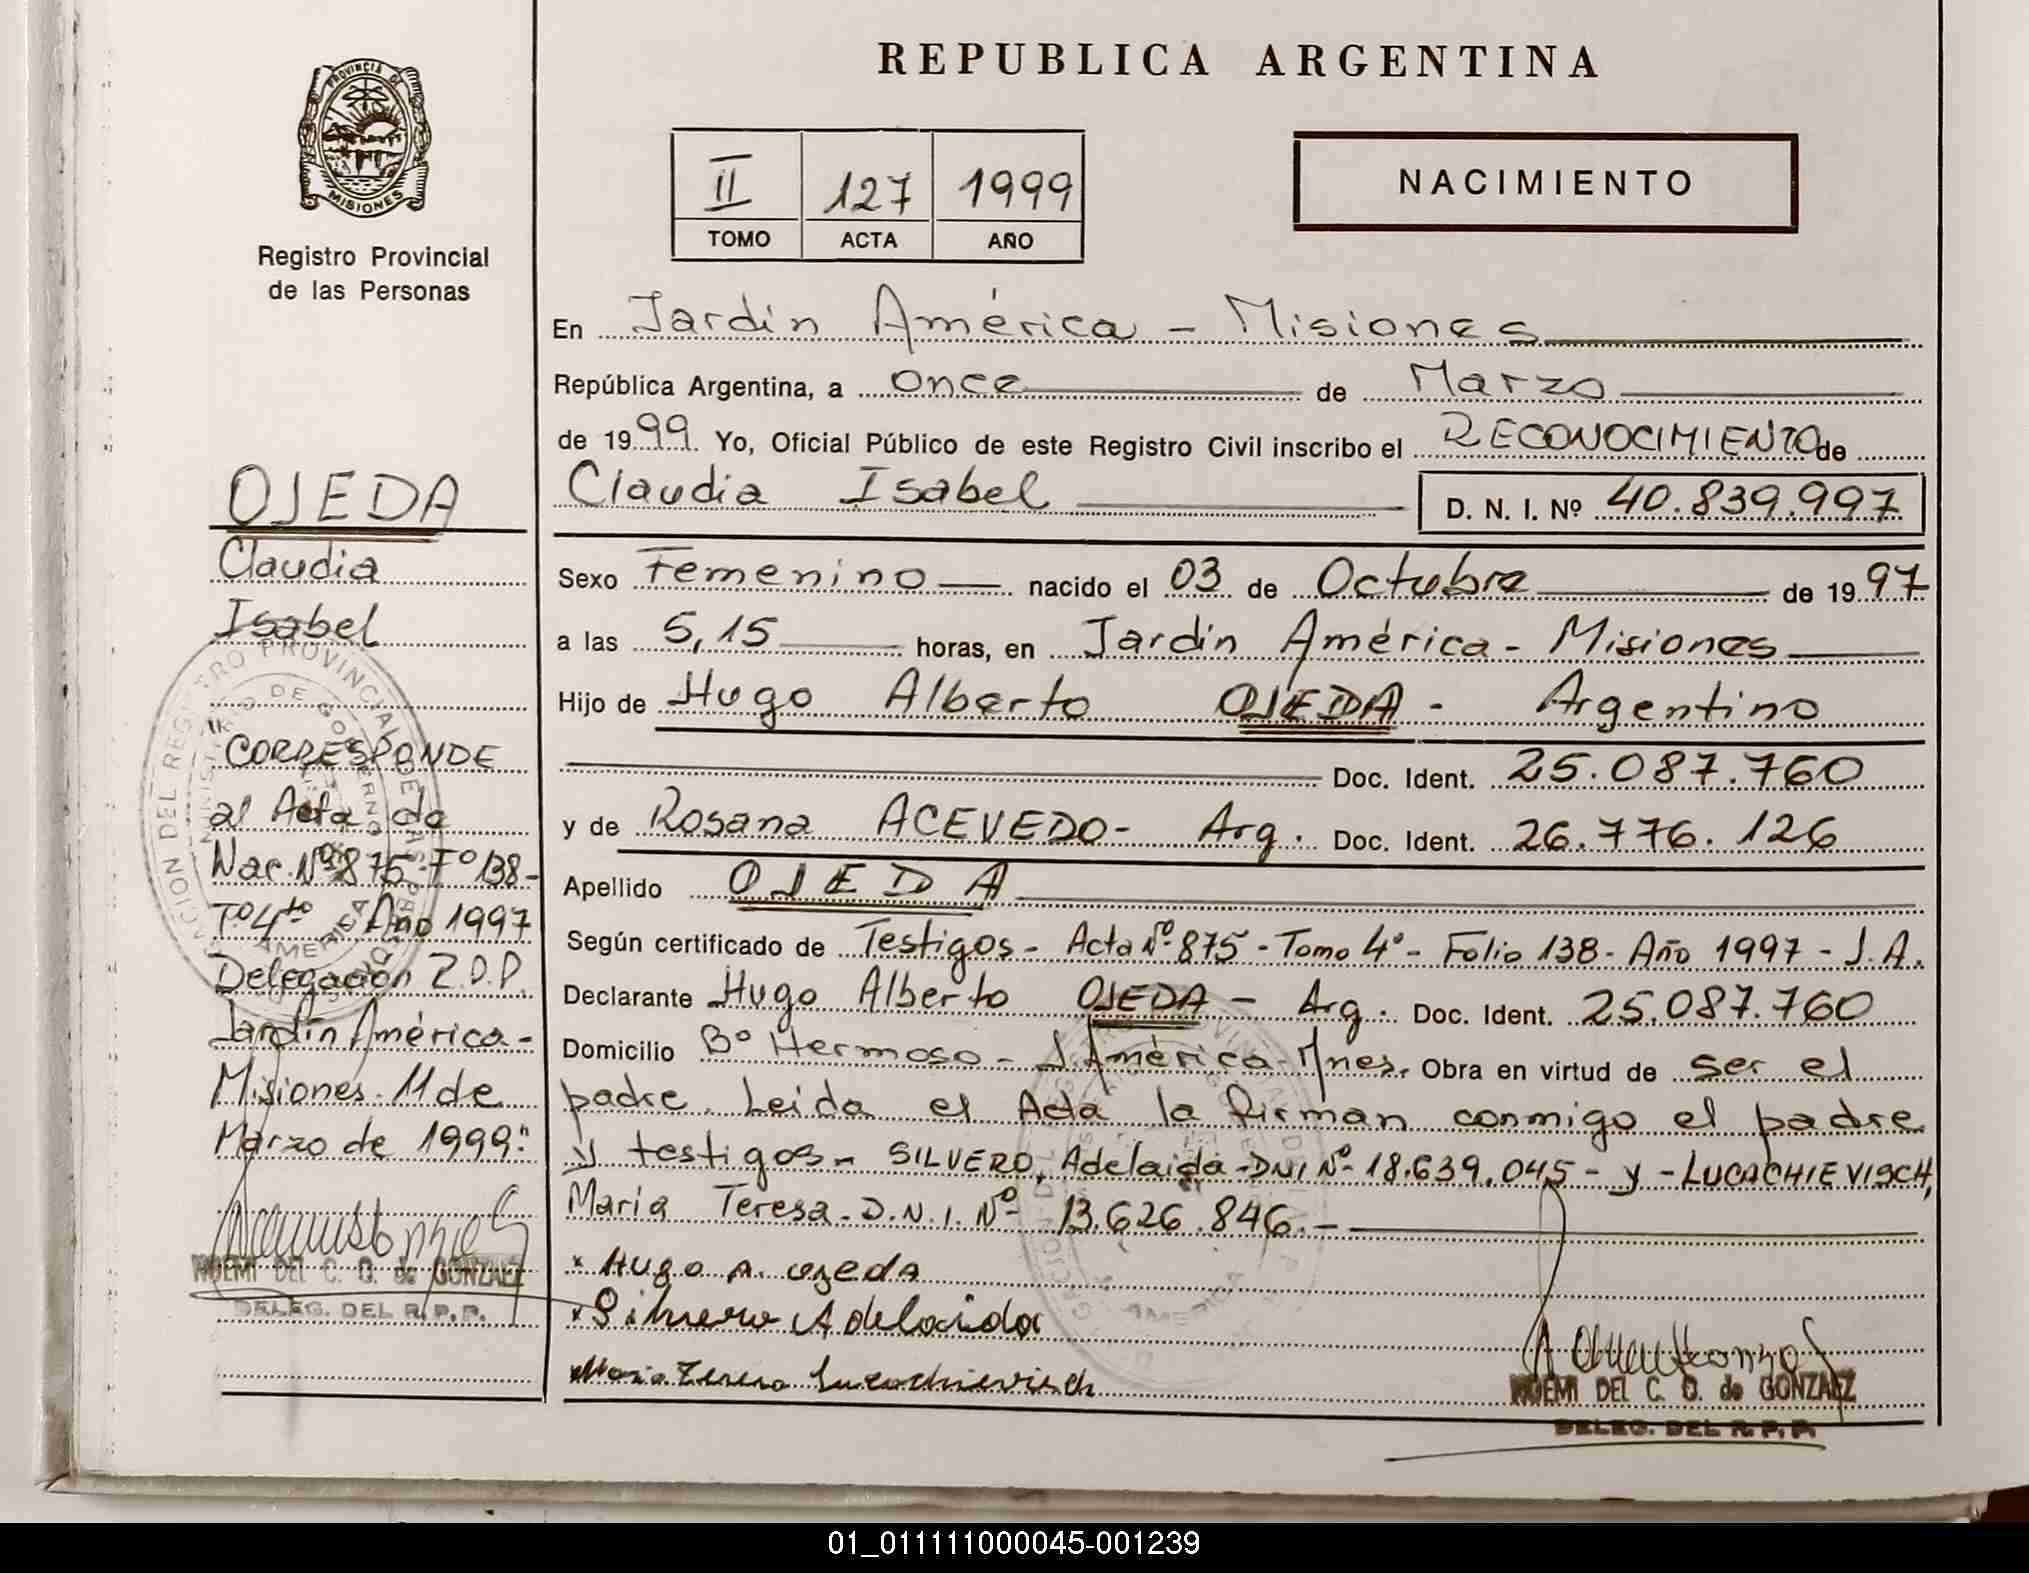 REPUBLICA ARGENTINA
PROVINCIA DE
MISIONES
Registro Provincial
de las Personas
II 127 1999
TOMO ACTA AÑO
NACIMIENTO
En Jardín América - Misiones
República Argentina, a once de Marzo
de 1999. Yo, Oficial Público de este Registro Civil inscribo el RECONOCIMIENTO de
Claudia Isabel D. N. I. Nº 40.839.997
Sexo Femenino nacido el 03 de Octubre de 1997
a las 5,15 horas, en Jardín América - Misiones
Hijo de Hugo Alberto OJEDA - Argentino
Doc. Ident. 25.087.760
y de Rosana ACEVEDO - Arg. Doc. Ident. 26.776.126
Apellido OJEDA
Según certificado de Testigos - Acta Nº 875 - Tomo 4º - Folio 138 - Año 1997 - J.A.
Declarante Hugo Alberto OJEDA - Arg. Doc. Ident. 25.087.760
Domicilio Bº Hermoso - J. América - Mnes. Obra en virtud de ser el
padre. Leida el Acta la firman conmigo el padre
y testigos - SILVERO, Adelaida - DNI Nº 18.639.045 - y - LUCACHIEVISCH,
Maria Teresa - D.N.I. Nº 13.626.846.-
x Hugo A. ojeda
x Silvero Adelaida
Maria Teresa Lucachievisch
NOEMI DEL C. O. de GONZALEZ
DELEG. DEL R. P. P.
OJEDA
Claudia
Isabel
CORRESPONDE
al Acta de
Nac. Nº 875 - Fº 138 -
Tº 4to Año 1997
Delegación R.P.P.
Jardín América -
Misiones 11 de
Marzo de 1999."
NOEMI DEL C. O. de GONZALEZ
DELEG. DEL R. P. P.
01_011111000045-001239